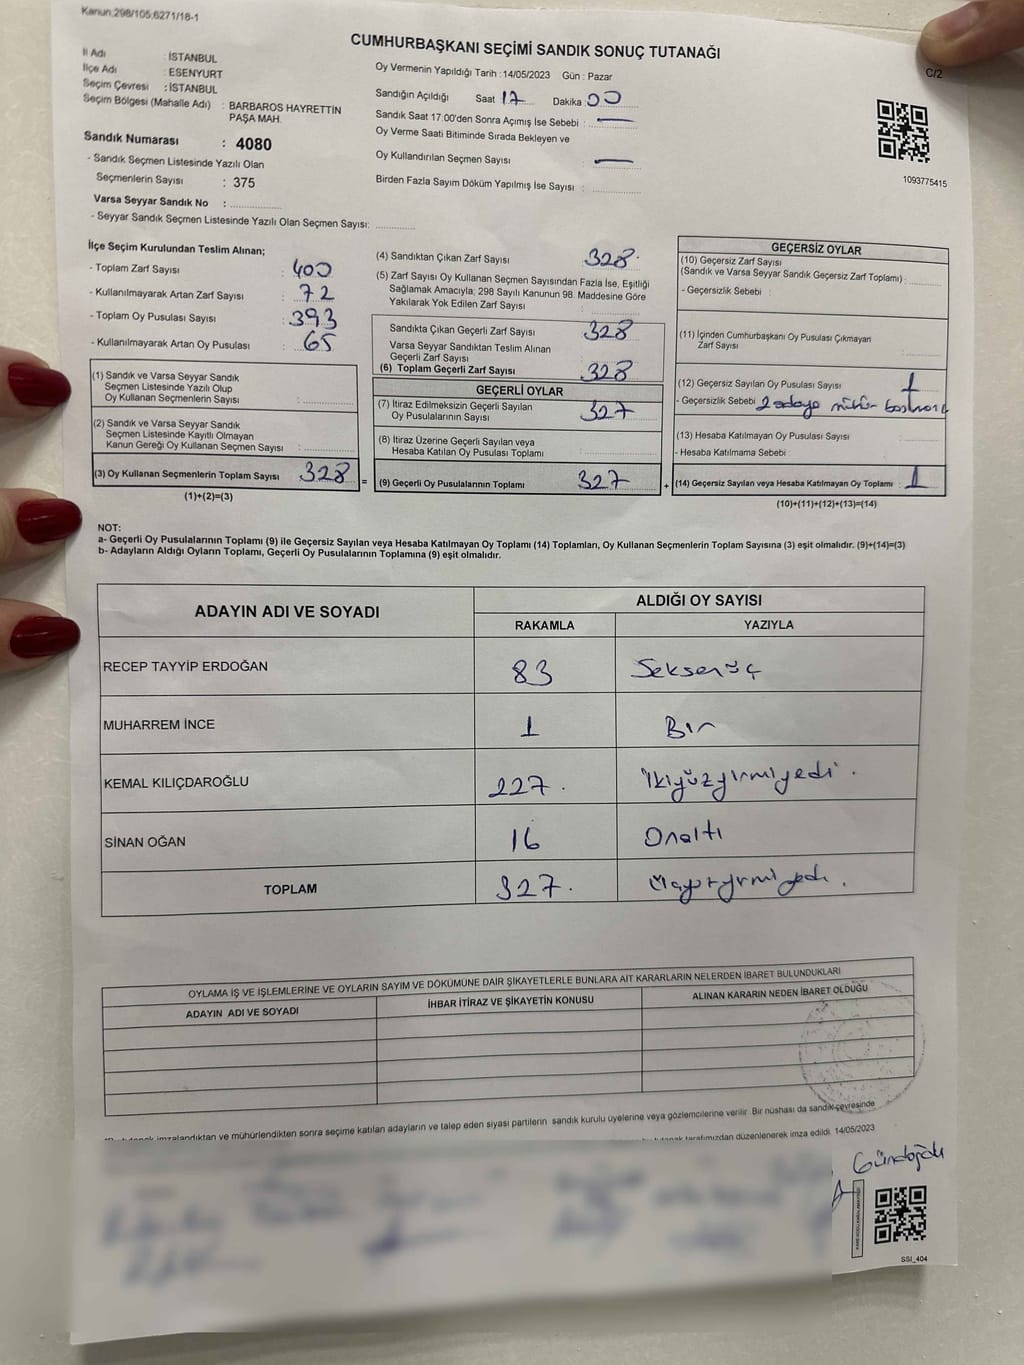 Kanun:298/105,6271/18-1
CUMHURBAŞKANI SEÇİMİ SANDIK SONUÇ TUTANAĞI
C/2
İl Adı : İSTANBUL
İlçe Adı : ESENYURT
Seçim Çevresi : İSTANBUL
Seçim Bölgesi (Mahalle Adı) : BARBAROS HAYRETTİN
PAŞA MAH.
Sandık Numarası : 4080
- Sandık Seçmen Listesinde Yazılı Olan
Seçmenlerin Sayısı : 375
Varsa Seyyar Sandık No :
- Seyyar Sandık Seçmen Listesinde Yazılı Olan Seçmen Sayısı:
Oy Vermenin Yapıldığı Tarih : 14/05/2023 Gün : Pazar
Sandığın Açıldığı Saat 17 Dakika 00
Sandık Saat 17:00'den Sonra Açımış İse Sebebi : —
Oy Verme Saati Bitiminde Sırada Bekleyen ve
Oy Kullandırılan Seçmen Sayısı : —
Birden Fazla Sayım Döküm Yapılmış İse Sayısı :
1093775415
İlçe Seçim Kurulundan Teslim Alınan;
- Toplam Zarf Sayısı : 400
- Kullanılmayarak Artan Zarf Sayısı : 72
- Toplam Oy Pusulası Sayısı : 393
- Kullanılmayarak Artan Oy Pusulası : 65
(1) Sandık ve Varsa Seyyar Sandık
Seçmen Listesinde Yazılı Olup
Oy Kullanan Seçmenlerin Sayısı :
(2) Sandık ve Varsa Seyyar Sandık
Seçmen Listesinde Kayıtlı Olmayan
Kanun Gereği Oy Kullanan Seçmen Sayısı :
(3) Oy Kullanan Seçmenlerin Toplam Sayısı 328
(1)+(2)=(3)
(4) Sandıktan Çıkan Zarf Sayısı 328
(5) Zarf Sayısı Oy Kullanan Seçmen Sayısından Fazla İse, Eşitliği
Sağlamak Amacıyla; 298 Sayılı Kanunun 98. Maddesine Göre
Yakılarak Yok Edilen Zarf Sayısı :
Sandıkta Çıkan Geçerli Zarf Sayısı 328
Varsa Seyyar Sandıktan Teslim Alınan
Geçerli Zarf Sayısı
(6) Toplam Geçerli Zarf Sayısı 328
GEÇERLİ OYLAR
(7) İtiraz Edilmeksizin Geçerli Sayılan
Oy Pusulalarının Sayısı : 327
(8) İtiraz Üzerine Geçerli Sayılan veya
Hesaba Katılan Oy Pusulası Toplamı :
= (9) Geçerli Oy Pusulalarının Toplamı 327
GEÇERSİZ OYLAR
(10) Geçersiz Zarf Sayısı
(Sandık ve Varsa Seyyar Sandık Geçersiz Zarf Toplamı) :
- Geçersizlik Sebebi :
(11) İçinden Cumhurbaşkanı Oy Pusulası Çıkmayan
Zarf Sayısı :
(12) Geçersiz Sayılan Oy Pusulası Sayısı 1
- Geçersizlik Sebebi 2 adaya mühür
(13) Hesaba Katılmayan Oy Pusulası Sayısı :
- Hesaba Katılmama Sebebi :
+ (14) Geçersiz Sayılan veya Hesaba Katılmayan Oy Toplamı : 1
(10)+(11)+(12)+(13)=(14)
NOT:
a- Geçerli Oy Pusulalarının Toplamı (9) ile Geçersiz Sayılan veya Hesaba Katılmayan Oy Toplamı (14) Toplamları, Oy Kullanan Seçmenlerin Toplam Sayısına (3) eşit olmalıdır. (9)+(14)=(3)
b- Adayların Aldığı Oyların Toplamı, Geçerli Oy Pusulalarının Toplamına (9) eşit olmalıdır.
ADAYIN ADI VE SOYADI ALDIĞI OY SAYISI
RAKAMLA YAZIYLA
RECEP TAYYİP ERDOĞAN 83 Seksenüç
MUHARREM İNCE 1 Bir
KEMAL KILIÇDAROĞLU 227. İkiyüzyirmiyedi.
SİNAN OĞAN 16 Onaltı
TOPLAM 327. Üçyüzyirmiyedi.
OYLAMA İŞ VE İŞLEMLERİNE VE OYLARIN SAYIM VE DÖKÜMÜNE DAİR ŞİKAYETLERLE BUNLARA AİT KARARLARIN NELERDEN İBARET BULUNDUKLARI
ADAYIN ADI VE SOYADI İHBAR İTİRAZ VE ŞİKAYETİN KONUSU ALINAN KARARIN NEDEN İBARET OLDUĞU
imzalandıktan ve mühürlendikten sonra seçime katılan adayların ve talep eden siyasi partilerin sandık kurulu üyelerine veya gözlemcilerine verilir. Bir nüshası da sandık çevresinde
tutanak tarafımızdan düzenlenerek imza edildi. 14/05/2023
Gündoğdu
SSI_404